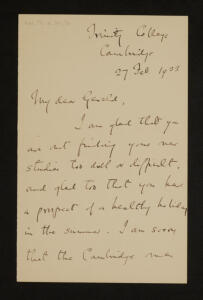 Trinity College
Cambridge
27 Feb 1903
My dear Gerald,
I am glad that you
are not finding your new
studies too dull or difficult,
and glad too that you have
a prospect of a healthy holiday
in the summer. I am sorry
that the Cambridge men